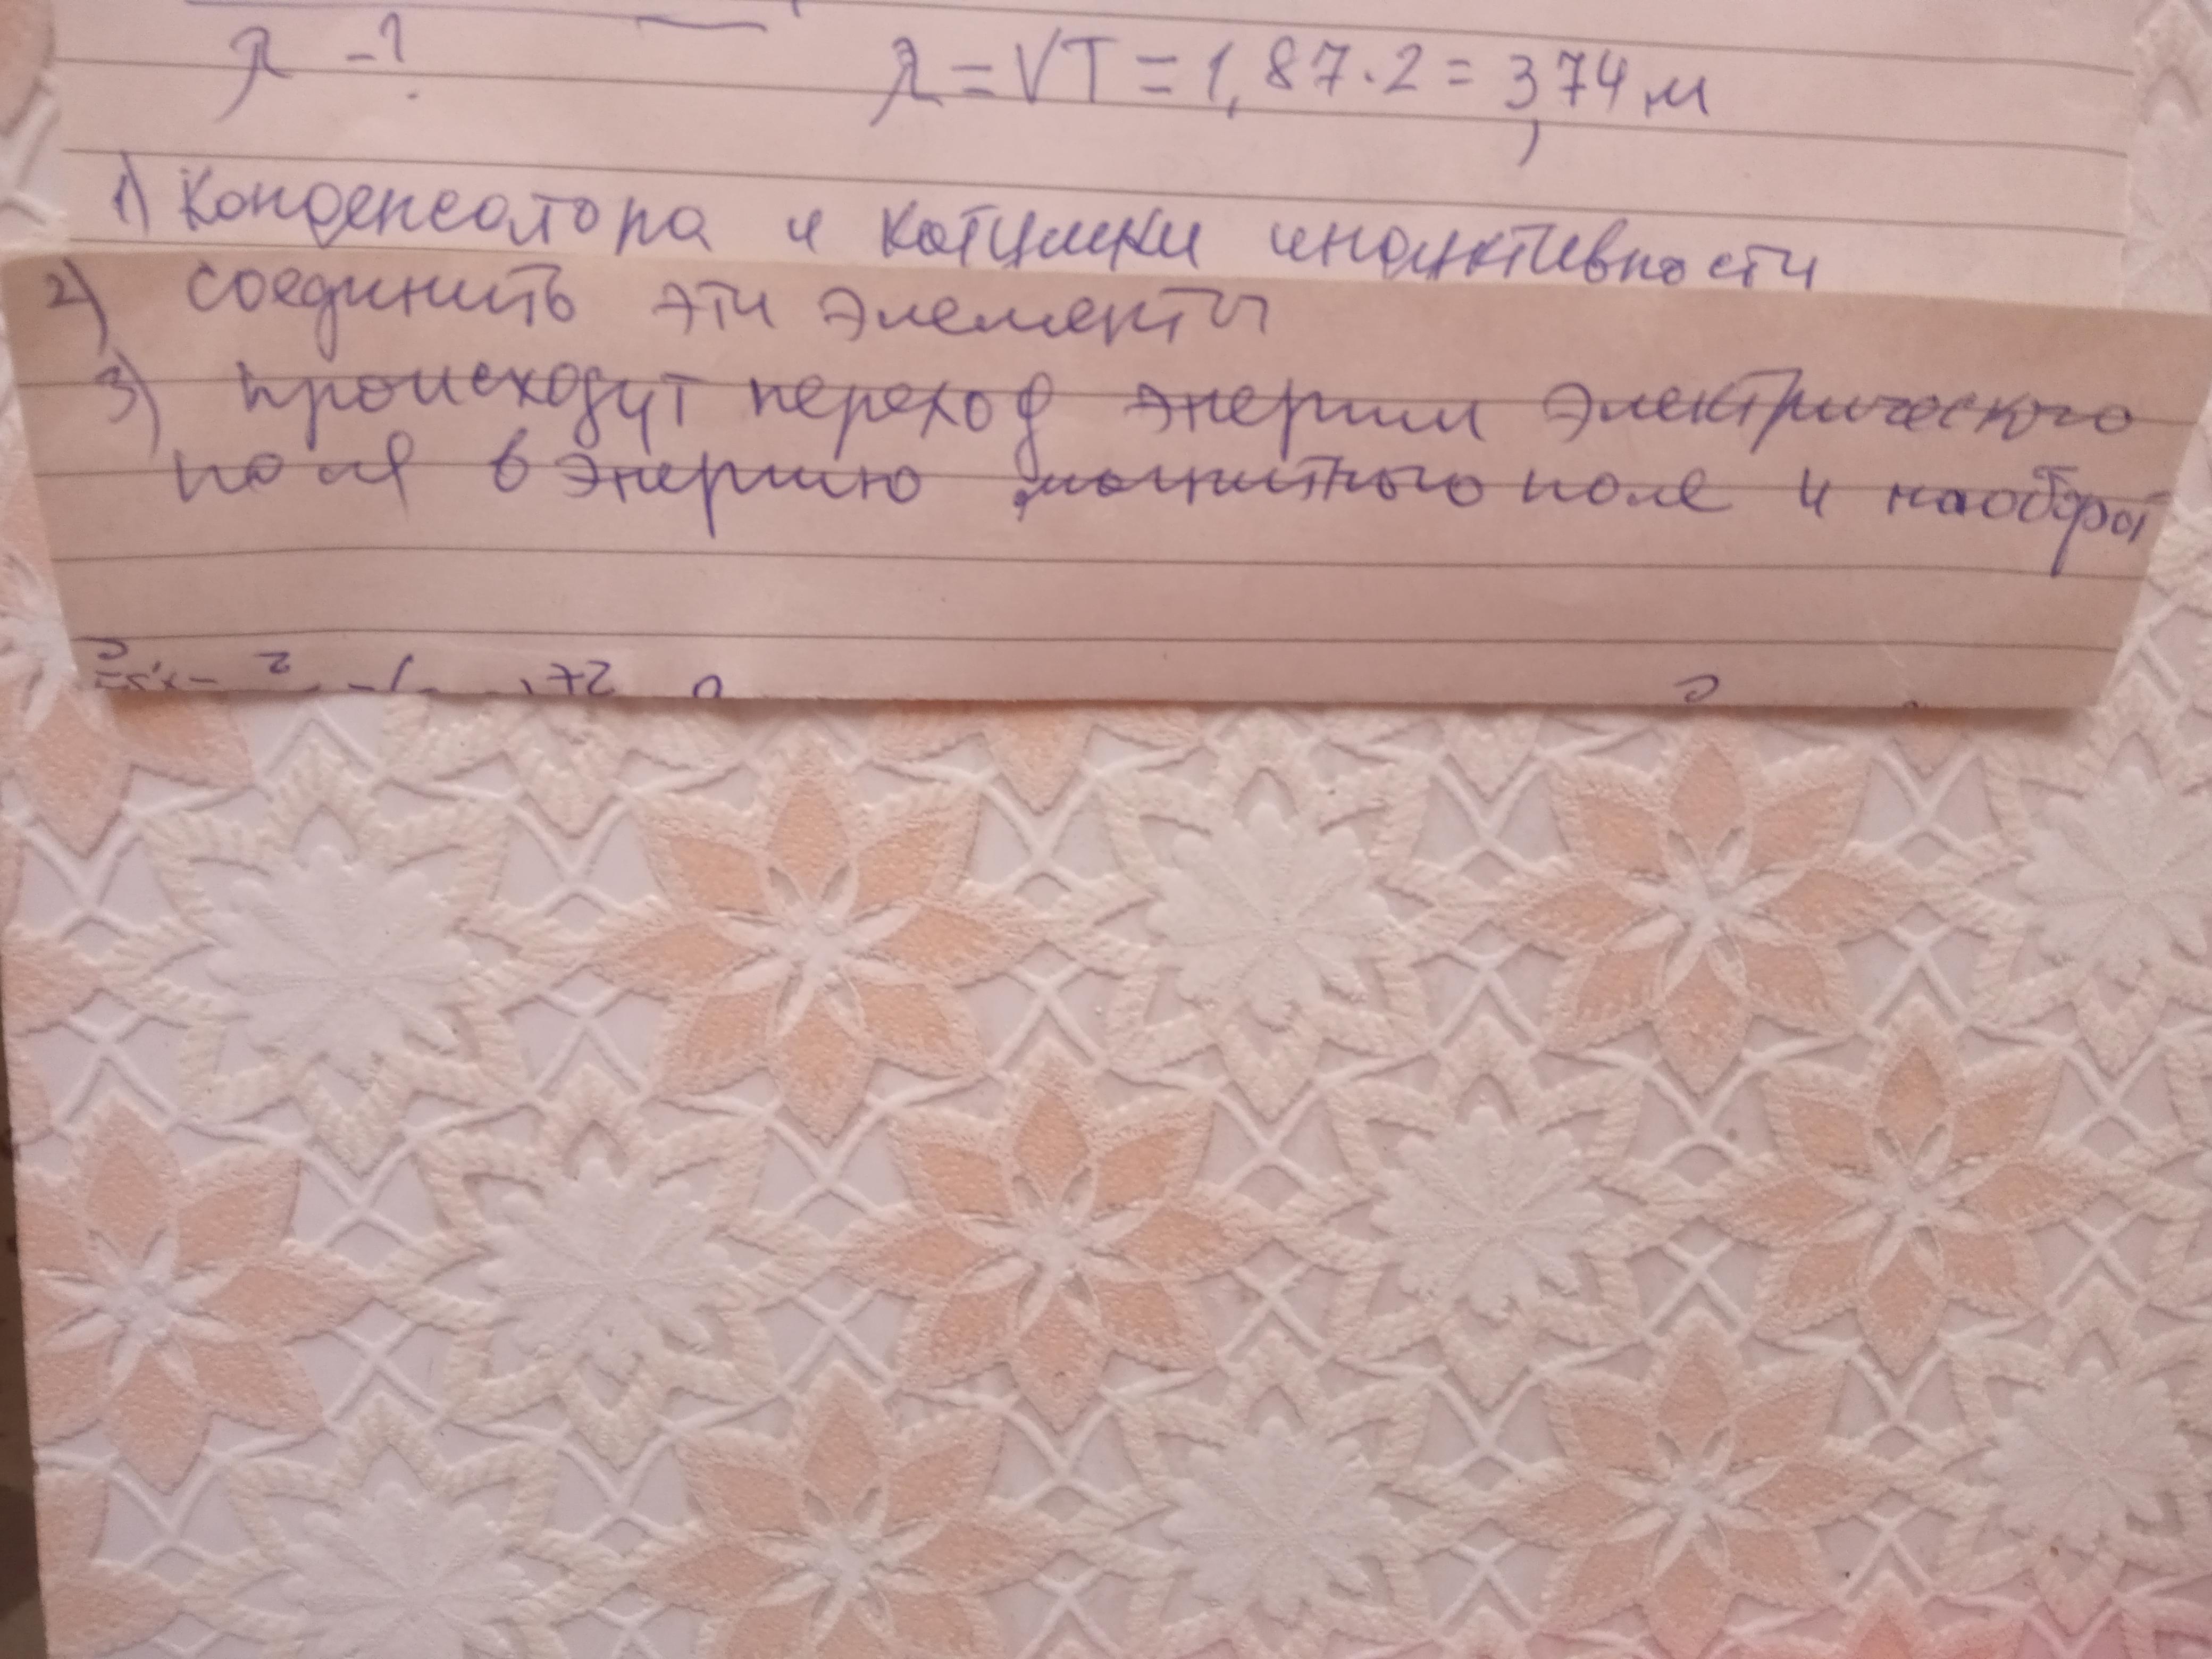 λ -?
λ = VT = 1,87·2 = 3,74 м
1) Конденсатора и катушки индуктивности
2) соединить эти элементы
3) происходут переход энергии электрического
поля в энергию магнитного поле и наоборот